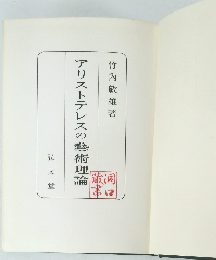 竹内敏雄著
アリストテレスの藝術理論
弘文堂